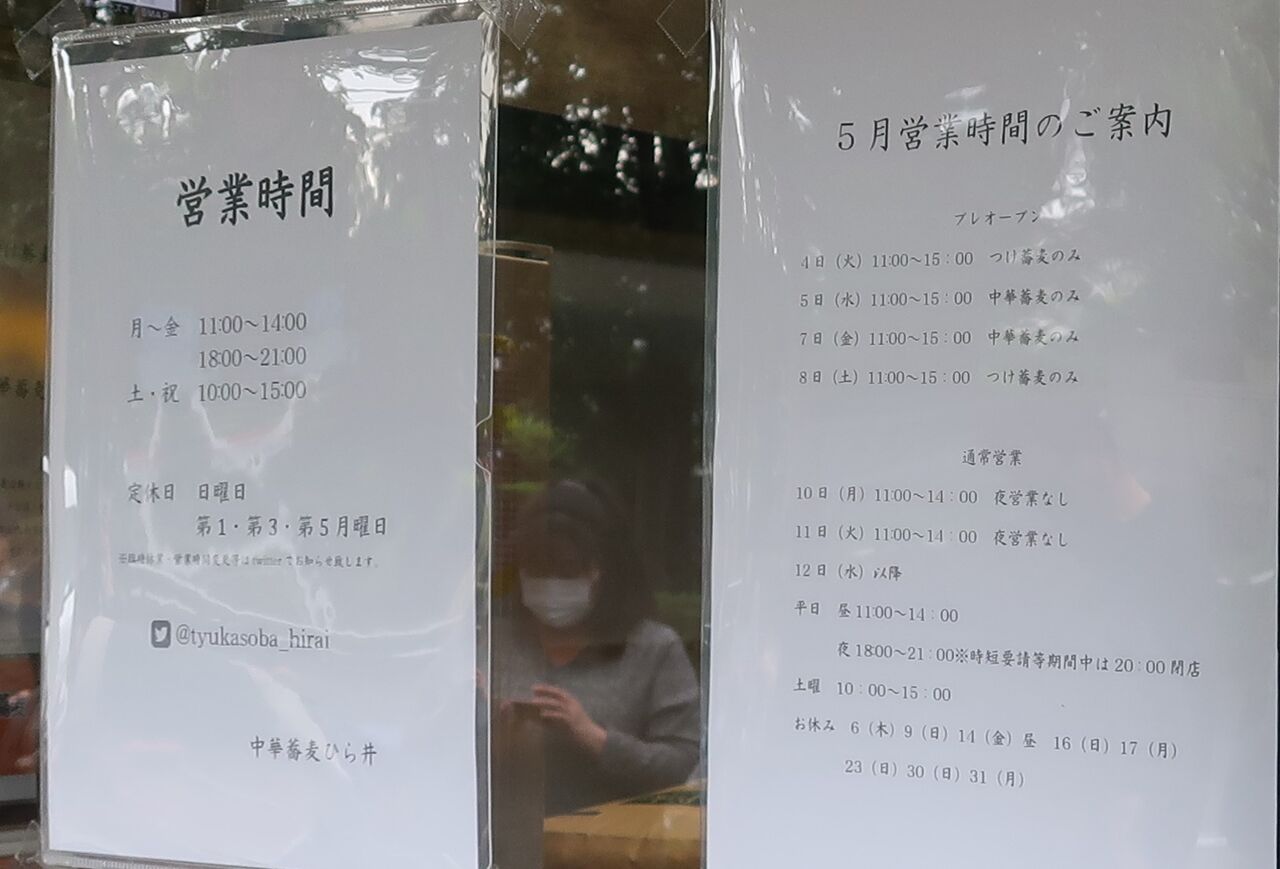 営業時間
月～金 11:00～14:00
18:00～21:00
土・祝 10:00～15:00
定休日 日曜日
第1・第3・第5月曜日
※臨時休業・営業時間変更等はtwitterでお知らせ致します。
@tyukasoba_hirai
中華蕎麦ひら井
5月営業時間のご案内
プレオープン
4日（火）11:00～15：00 つけ蕎麦のみ
5日（水）11:00～15：00 中華蕎麦のみ
7日（金）11:00～15：00 中華蕎麦のみ
8日（土）11:00～15：00 つけ蕎麦のみ
通常営業
10日（月）11:00～14：00 夜営業なし
11日（火）11:00～14：00 夜営業なし
12日（水）以降
平日 昼11:00～14：00
夜18:00～21：00※時短要請等期間中は20：00閉店
土曜 10：00～15：00
お休み 6（木）9（日）14（金）昼 16（日）17（月）
23（日）30（日）31（月）